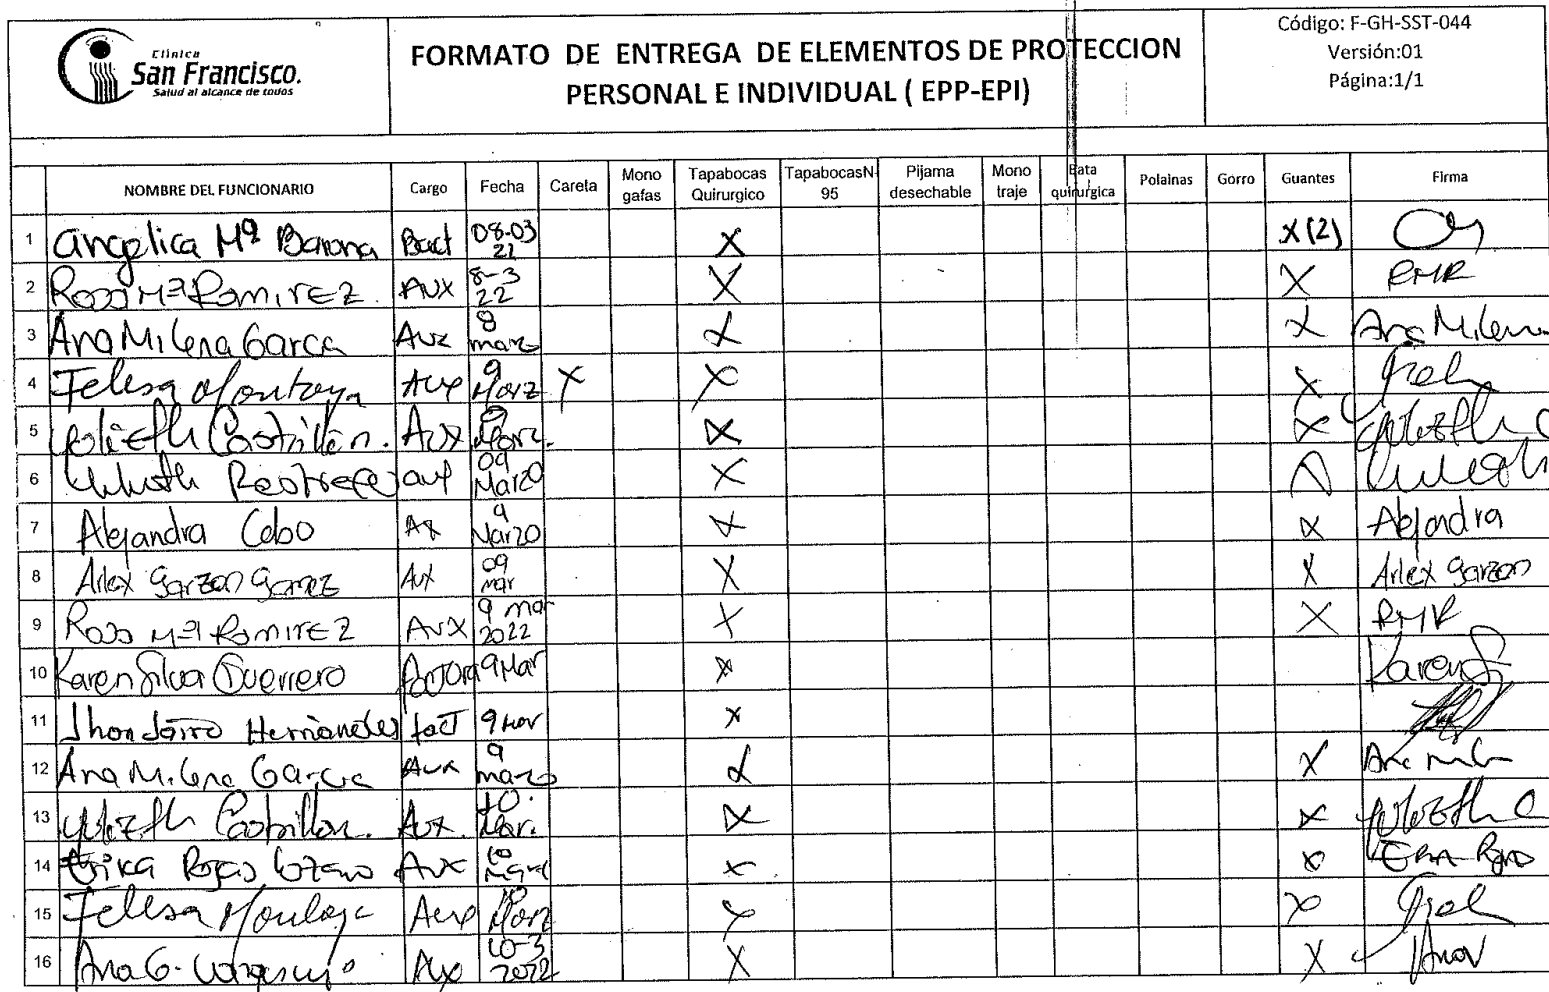 Clínica
San Francisco.
Salud al alcance de todos
FORMATO DE ENTREGA DE ELEMENTOS DE PROTECCION
PERSONAL E INDIVIDUAL ( EPP-EPI)
Código: F-GH-SST-044
Versión:01
Página:1/1
NOMBRE DEL FUNCIONARIO Cargo Fecha Careta Mono gafas Tapabocas Quirurgico TapabocasN-95 Pijama desechable Mono traje Bata quirurgica Polainas Gorro Guantes Firma
1 Angelica Mª Barona Bact 08-03 21 X X(2)
2 Rosa Mª Ramirez AUX 8-3 22 X X RMR
3 Ana Milena Garca Aux 8 marzo X X Ana Milena
4 Telesa Montoya Aux 9 Marz X X X
5 Yulieth Castrillón. Aux 9 Marz. X X
6 Restrepo aux 09 Marzo X
7 Alejandra Cobo Ax 9 Marzo X X Alejandra
8 Arlex Garzon Gomez Aux 09 mar X X Arlex Garzon
9 Rosa Mª Ramirez AUX 9 mar 2022 X X RMR
10 Karen Silva Guerrero 9 Mar X Karen S
11 Jhon Jairo Hernandez fact 9 Mar X
12 Ana Milena Garcia Aux 9 marzo X X
13 Castrillon. Aux. 10. Mar. X X
14 Erika Rojas Lozano Aux 10 X X
15 Telesa Montoya Aux 10 Marz X X
16 Ana G. Aux 10-3 2022 X X